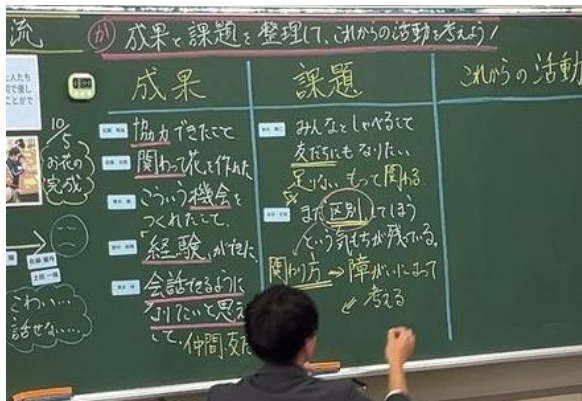 流
か 成果と課題を整理して、これからの活動を考えよう!
10/5
お花の
完成
こわい…
話せない…
成果
協力できたこと
関わって花を作れた
こういう機会を
つくれたこと。
経験ができた。
会話できるように
なりたいと思え
て。仲間、友だ
課題
みんなとしゃべること
友だちにもなりたい
足りない もっと関わる
まだ区別してしまう
という気もちが残っている。
関わり方 → 障がいによって
考える
これからの活動